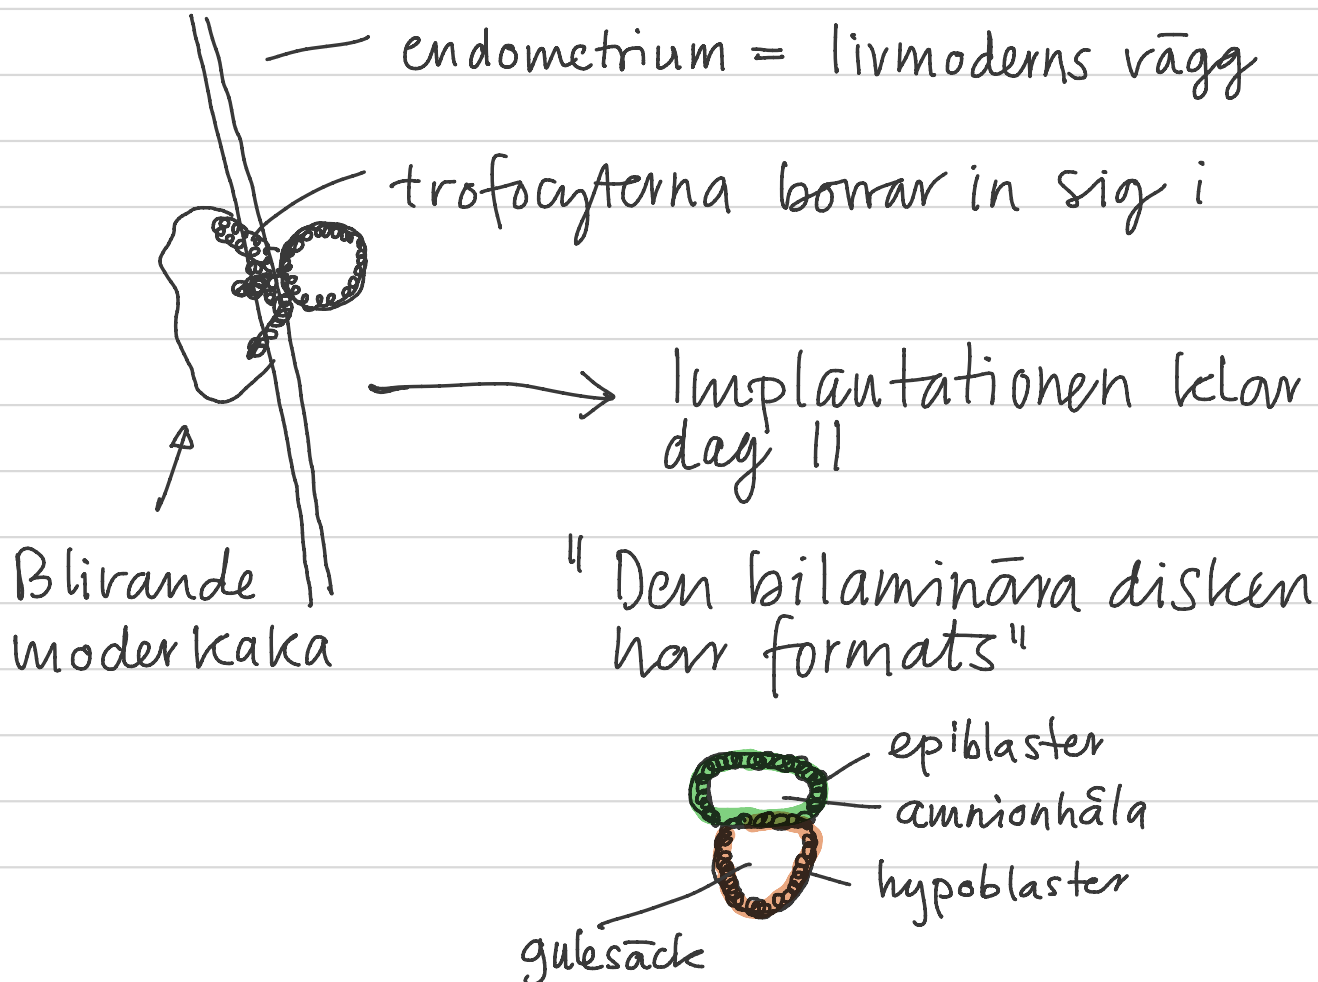 endometrium = livmoderns vägg
trofocyterna borrar in sig i
Implantationen klar
dag 11
Blivande
moderkaka
"Den bilaminära disken
har formats"
epiblaster
amnionhåla
hypoblaster
gulesäck